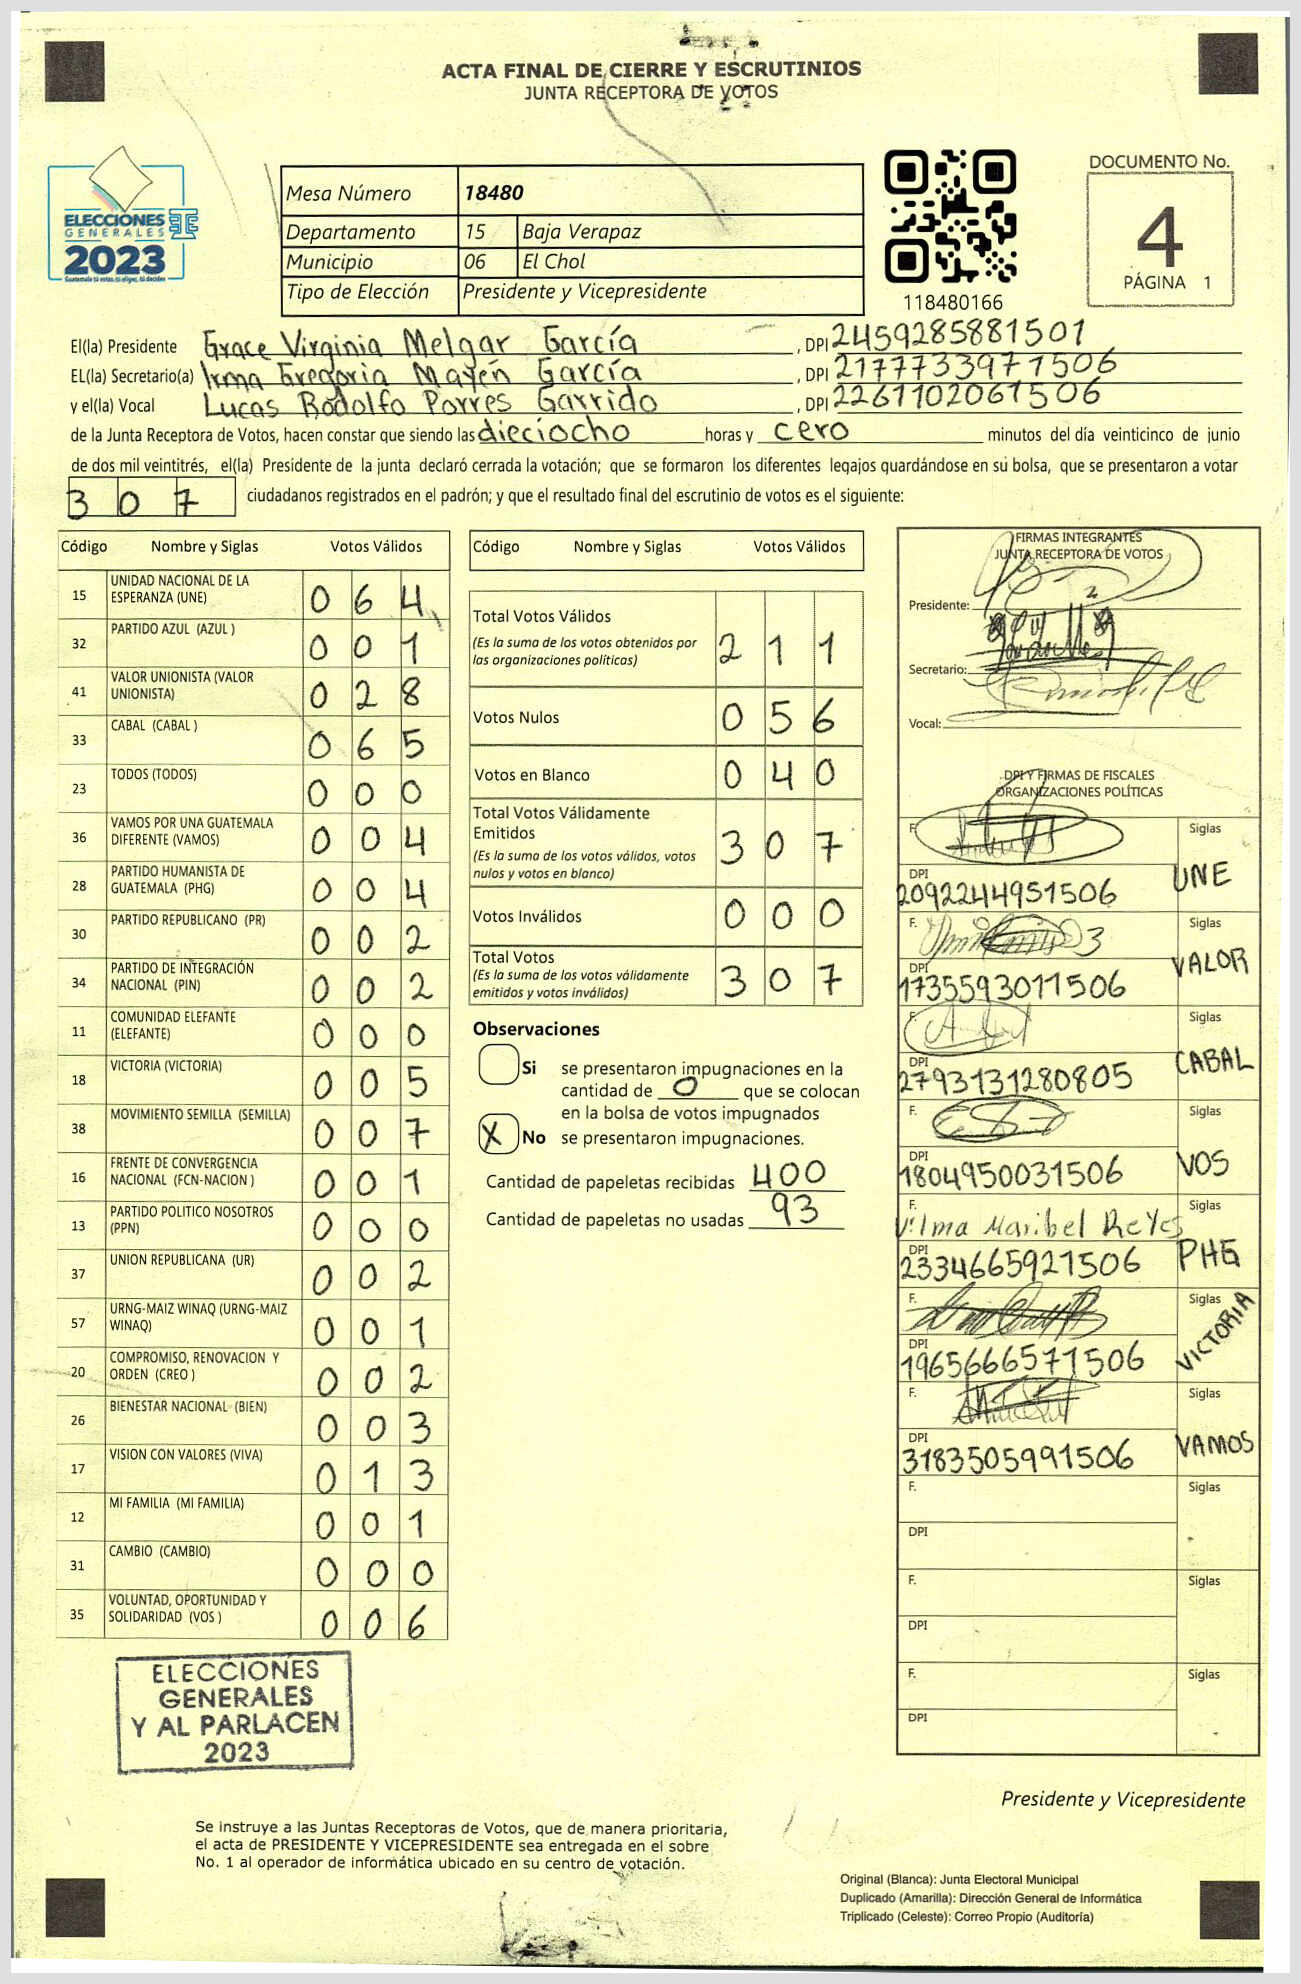 ACTA FINAL DE CIERRE Y ESCRUTINIOS
JUNTA RECEPTORA DE VOTOS
ELECCIONES
GENERALES
2023
Guatemala tú votas, tú eliges, tú decides
Mesa Número 18480
Departamento 15 Baja Verapaz
Municipio 06 El Chol
Tipo de Elección Presidente y Vicepresidente
118480166
DOCUMENTO No.
4
PÁGINA 1
El(la) Presidente Grace Virginia Melgar García, DPI 2459285881501
EL(la) Secretario(a) Irma Gregoria Mayén García, DPI 2177733971506
y el(la) Vocal Lucas Rodolfo Porres Garrido, DPI 2261102061506
de la Junta Receptora de Votos, hacen constar que siendo las dieciocho horas y cero minutos del día veinticinco de junio
de dos mil veintitrés, el(la) Presidente de la junta declaró cerrada la votación; que se formaron los diferentes legajos guardándose en su bolsa, que se presentaron a votar
307 ciudadanos registrados en el padrón; y que el resultado final del escrutinio de votos es el siguiente:
Código Nombre y Siglas Votos Válidos
15 UNIDAD NACIONAL DE LA ESPERANZA (UNE) 064
32 PARTIDO AZUL (AZUL ) 001
41 VALOR UNIONISTA (VALOR UNIONISTA) 028
33 CABAL (CABAL ) 065
23 TODOS (TODOS) 000
36 VAMOS POR UNA GUATEMALA DIFERENTE (VAMOS) 004
28 PARTIDO HUMANISTA DE GUATEMALA (PHG) 004
30 PARTIDO REPUBLICANO (PR) 002
34 PARTIDO DE INTEGRACIÓN NACIONAL (PIN) 002
11 COMUNIDAD ELEFANTE (ELEFANTE) 000
18 VICTORIA (VICTORIA) 005
38 MOVIMIENTO SEMILLA (SEMILLA) 007
16 FRENTE DE CONVERGENCIA NACIONAL (FCN-NACION ) 001
13 PARTIDO POLITICO NOSOTROS (PPN) 000
37 UNION REPUBLICANA (UR) 002
57 URNG-MAIZ WINAQ (URNG-MAIZ WINAQ) 001
20 COMPROMISO, RENOVACION Y ORDEN (CREO ) 002
26 BIENESTAR NACIONAL (BIEN) 003
17 VISION CON VALORES (VIVA) 013
12 MI FAMILIA (MI FAMILIA) 001
31 CAMBIO (CAMBIO) 000
35 VOLUNTAD, OPORTUNIDAD Y SOLIDARIDAD (VOS ) 006
Código Nombre y Siglas Votos Válidos
Total Votos Válidos 211
(Es la suma de los votos obtenidos por
las organizaciones políticas)
Votos Nulos 056
Votos en Blanco 040
Total Votos Válidamente
Emitidos 307
(Es la suma de los votos válidos, votos
nulos y votos en blanco)
Votos Inválidos 000
Total Votos 307
(Es la suma de los votos válidamente
emitidos y votos inválidos)
Observaciones
Si se presentaron impugnaciones en la
cantidad de 0 que se colocan
en la bolsa de votos impugnados
X No se presentaron impugnaciones.
Cantidad de papeletas recibidas 400
Cantidad de papeletas no usadas 93
FIRMAS INTEGRANTES
JUNTA RECEPTORA DE VOTOS
Presidente:
Secretario:
Vocal:
DPI Y FIRMAS DE FISCALES
ORGANIZACIONES POLÍTICAS
F. Siglas
DPI 2092244951506 UNE
F. Siglas
DPI 1735593011506 VALOR
F. Siglas
DPI 2793131280805 CABAL
F. Siglas
DPI 1804950031506 VOS
F. Vilma Maribel Reyes Siglas
DPI 2334665921506 PHG
F. Siglas
DPI 1965666571506 VICTORIA
F. Siglas
DPI 3183505991506 VAMOS
F. Siglas
DPI
F. Siglas
DPI
F. Siglas
DPI
ELECCIONES
GENERALES
Y AL PARLACEN
2023
Presidente y Vicepresidente
Se instruye a las Juntas Receptoras de Votos, que de manera prioritaria,
el acta de PRESIDENTE Y VICEPRESIDENTE sea entregada en el sobre
No. 1 al operador de informática ubicado en su centro de votación.
Original (Blanca): Junta Electoral Municipal
Duplicado (Amarilla): Dirección General de Informática
Triplicado (Celeste): Correo Propio (Auditoría)